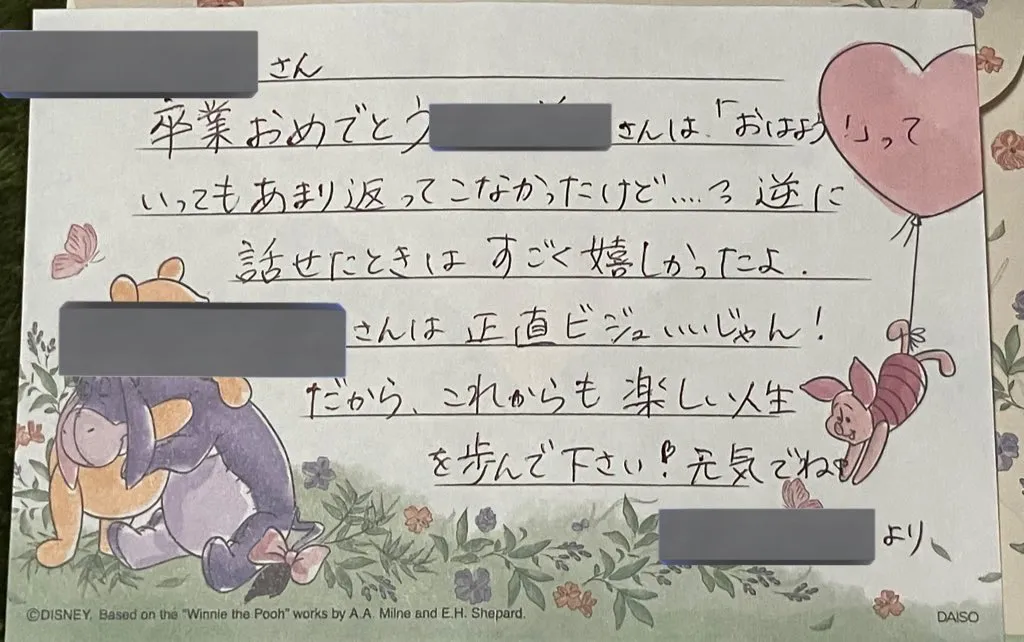 さん
卒業おめでとう さんは、「おはよう!」って
いってもあまり返ってこなかったけど....っ 逆に
話せたときは すごく嬉しかったよ.
さんは 正直ビジュいいじゃん!
だから、これからも 楽しい人生
を歩んで下さい!元気でね
より、
©DISNEY. Based on the "Winnie the Pooh" works by A.A. Milne and E.H. Shepard.
DAISO